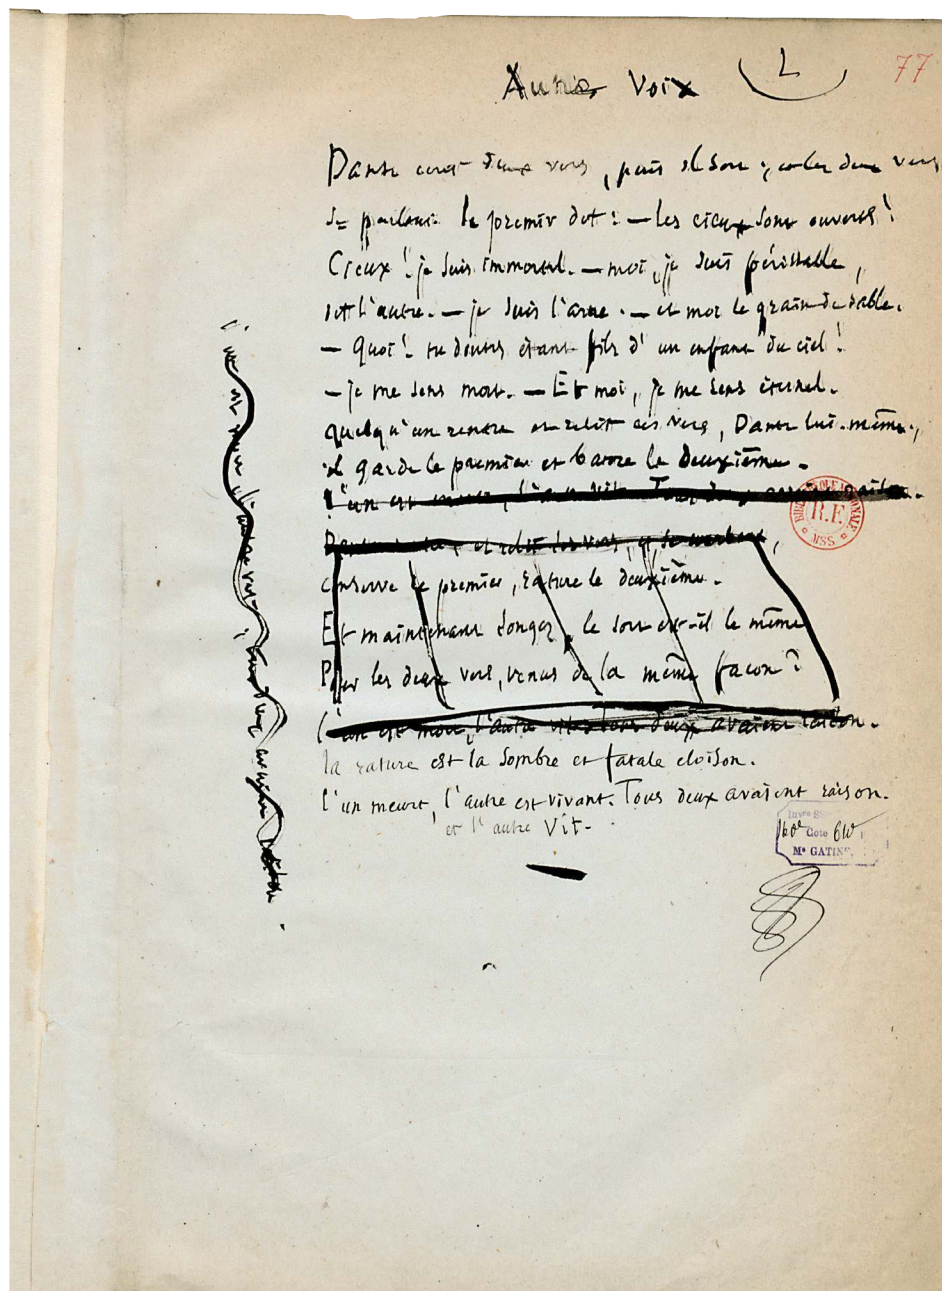 Autre Voix
L
77
Dante écrit deux vers, puis il sort ; et les deux vers
Se parlent. Le premier dit : — les cieux sont ouverts !
Cieux ! je suis immortel. — moi, je suis périssable,
dit l'autre. — je suis l'astre. — et moi le grain de sable.
— Quoi ! tu doutes étant fils d'un enfant du ciel !
— je me sens mort. — Et moi, je me sens éternel.
Quelqu'un rentre et relit ces vers, Dante lui-même ;
il garde le premier et barre le deuxième.
L'un est mort, l'autre vit. Tous deux avaient raison.
et relit les vers,
conserve le premier, rature le deuxième.
Et maintenant songez, le sort est-il le même
Pour les deux vers, venus de la même façon ?
L'un est mort, l'autre vit. Tous deux avaient raison.
la rature est la sombre et fatale cloison.
l'un meurt, l'autre est vivant. Tous deux avaient raison.
et l'autre vit.
l'un est mort, l'autre vit ; tous deux avaient raison.
BIBLIOTHÈQUE NATIONALE
R.F.
MSS
Cote
Me GATINE